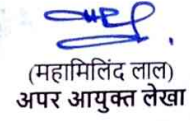 (महामिलिंद लाल)
अपर आयुक्त लेखा